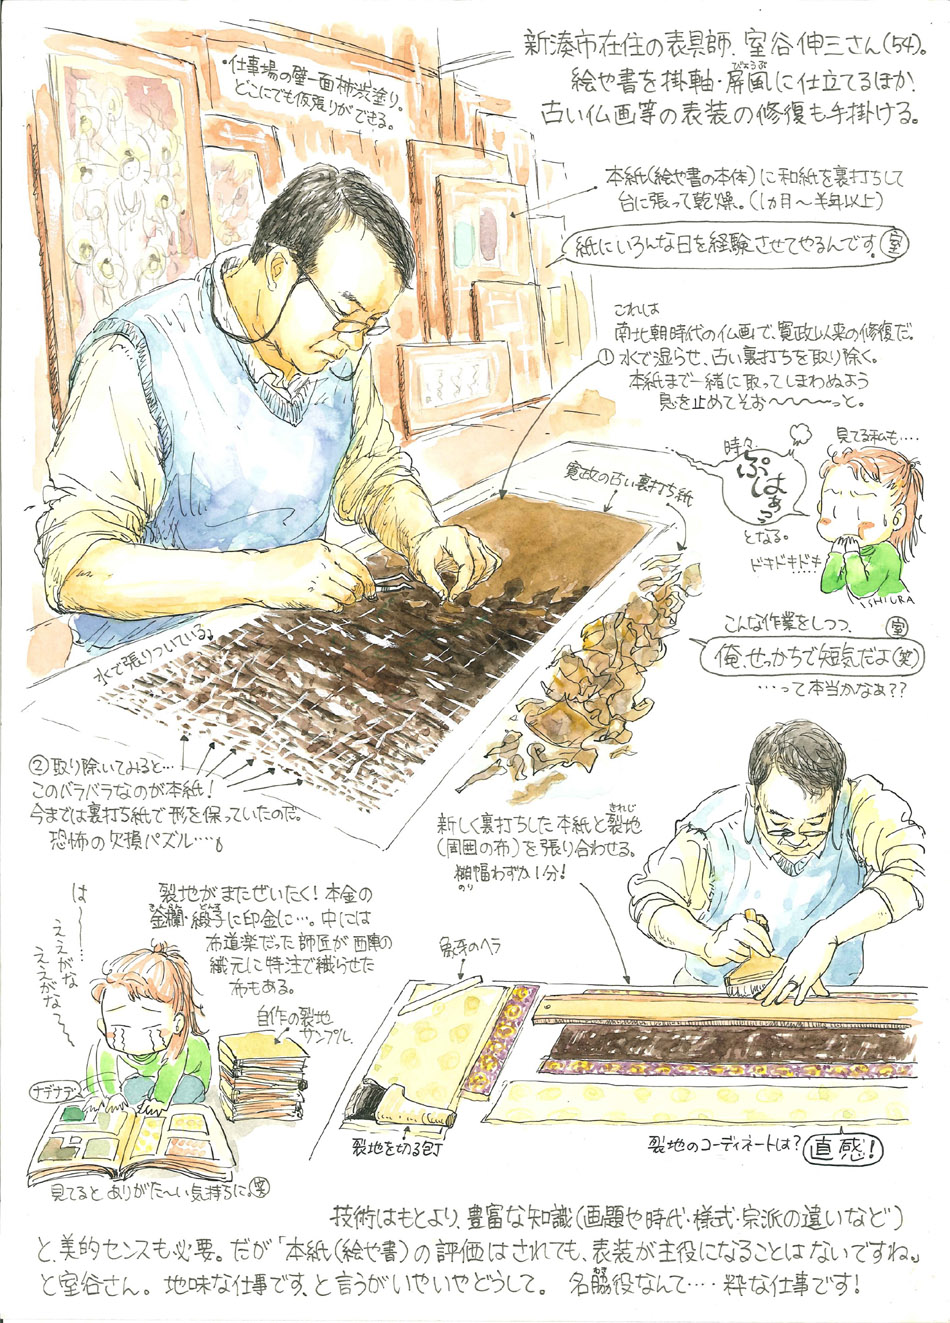 新湊市在住の表具師、室谷伸三さん(54)。
絵や書を掛軸・屏風に仕立てるほか、
びょうぶ
古い仏画等の表装の修復も手掛ける。
・仕事場の壁一面柿渋塗り。
どこにでも仮張りができる。
本紙(絵や書の本体)に和紙を裏打ちして
台に張って乾燥。(1ヵ月〜半年以上)
紙にいろんな日を経験させてやるんです。室
これは
南北朝時代の仏画で、寛政以来の修復だ。
①水で湿らせ、古い裏打ちを取り除く。
本紙まで一緒に取ってしまわぬよう
息を止めてそお〜〜〜〜っと。
寛政の古い裏打ち紙
時々、
ぷはぁっ
となる。
見てる私も‥‥
ドキドキドキ
ISHIURA
こんな作業をしつつ、
室
俺、せっかちで短気だよ(笑)
…って本当かなぁ??
水で張りついている。
②取り除いてみると…
このバラバラなのが本紙!
今までは裏打ち紙で形を保っていたのだ。
恐怖の欠損パズル‥‥。
新しく裏打ちした本紙と裂地
きれじ
(周囲の布)を張り合わせる。
糊幅わずか1分!
のり
は〜……
ええがな
ええがな〜
裂地がまたぜいたく!本金の
金襴・緞子に印金に…。中には
布道楽だった師匠が西陣の
織元に特注で織らせた
布もある。
自作の裂地
サンプル。
象牙のヘラ
ナデナデ
見てるとありがた〜い気持ちに。室
裂地を切る包丁
裂地のコーディネートは?
直感!
技術はもとより、豊富な知識(画題や時代・様式・宗派の違いなど)
と、美的センスも必要。だが「本紙(絵や書)の評価はされても、表装が主役になることはないですね。」
と室谷さん。地味な仕事です、と言うがいやいやどうして。名脇役なんて‥‥粋な仕事です!